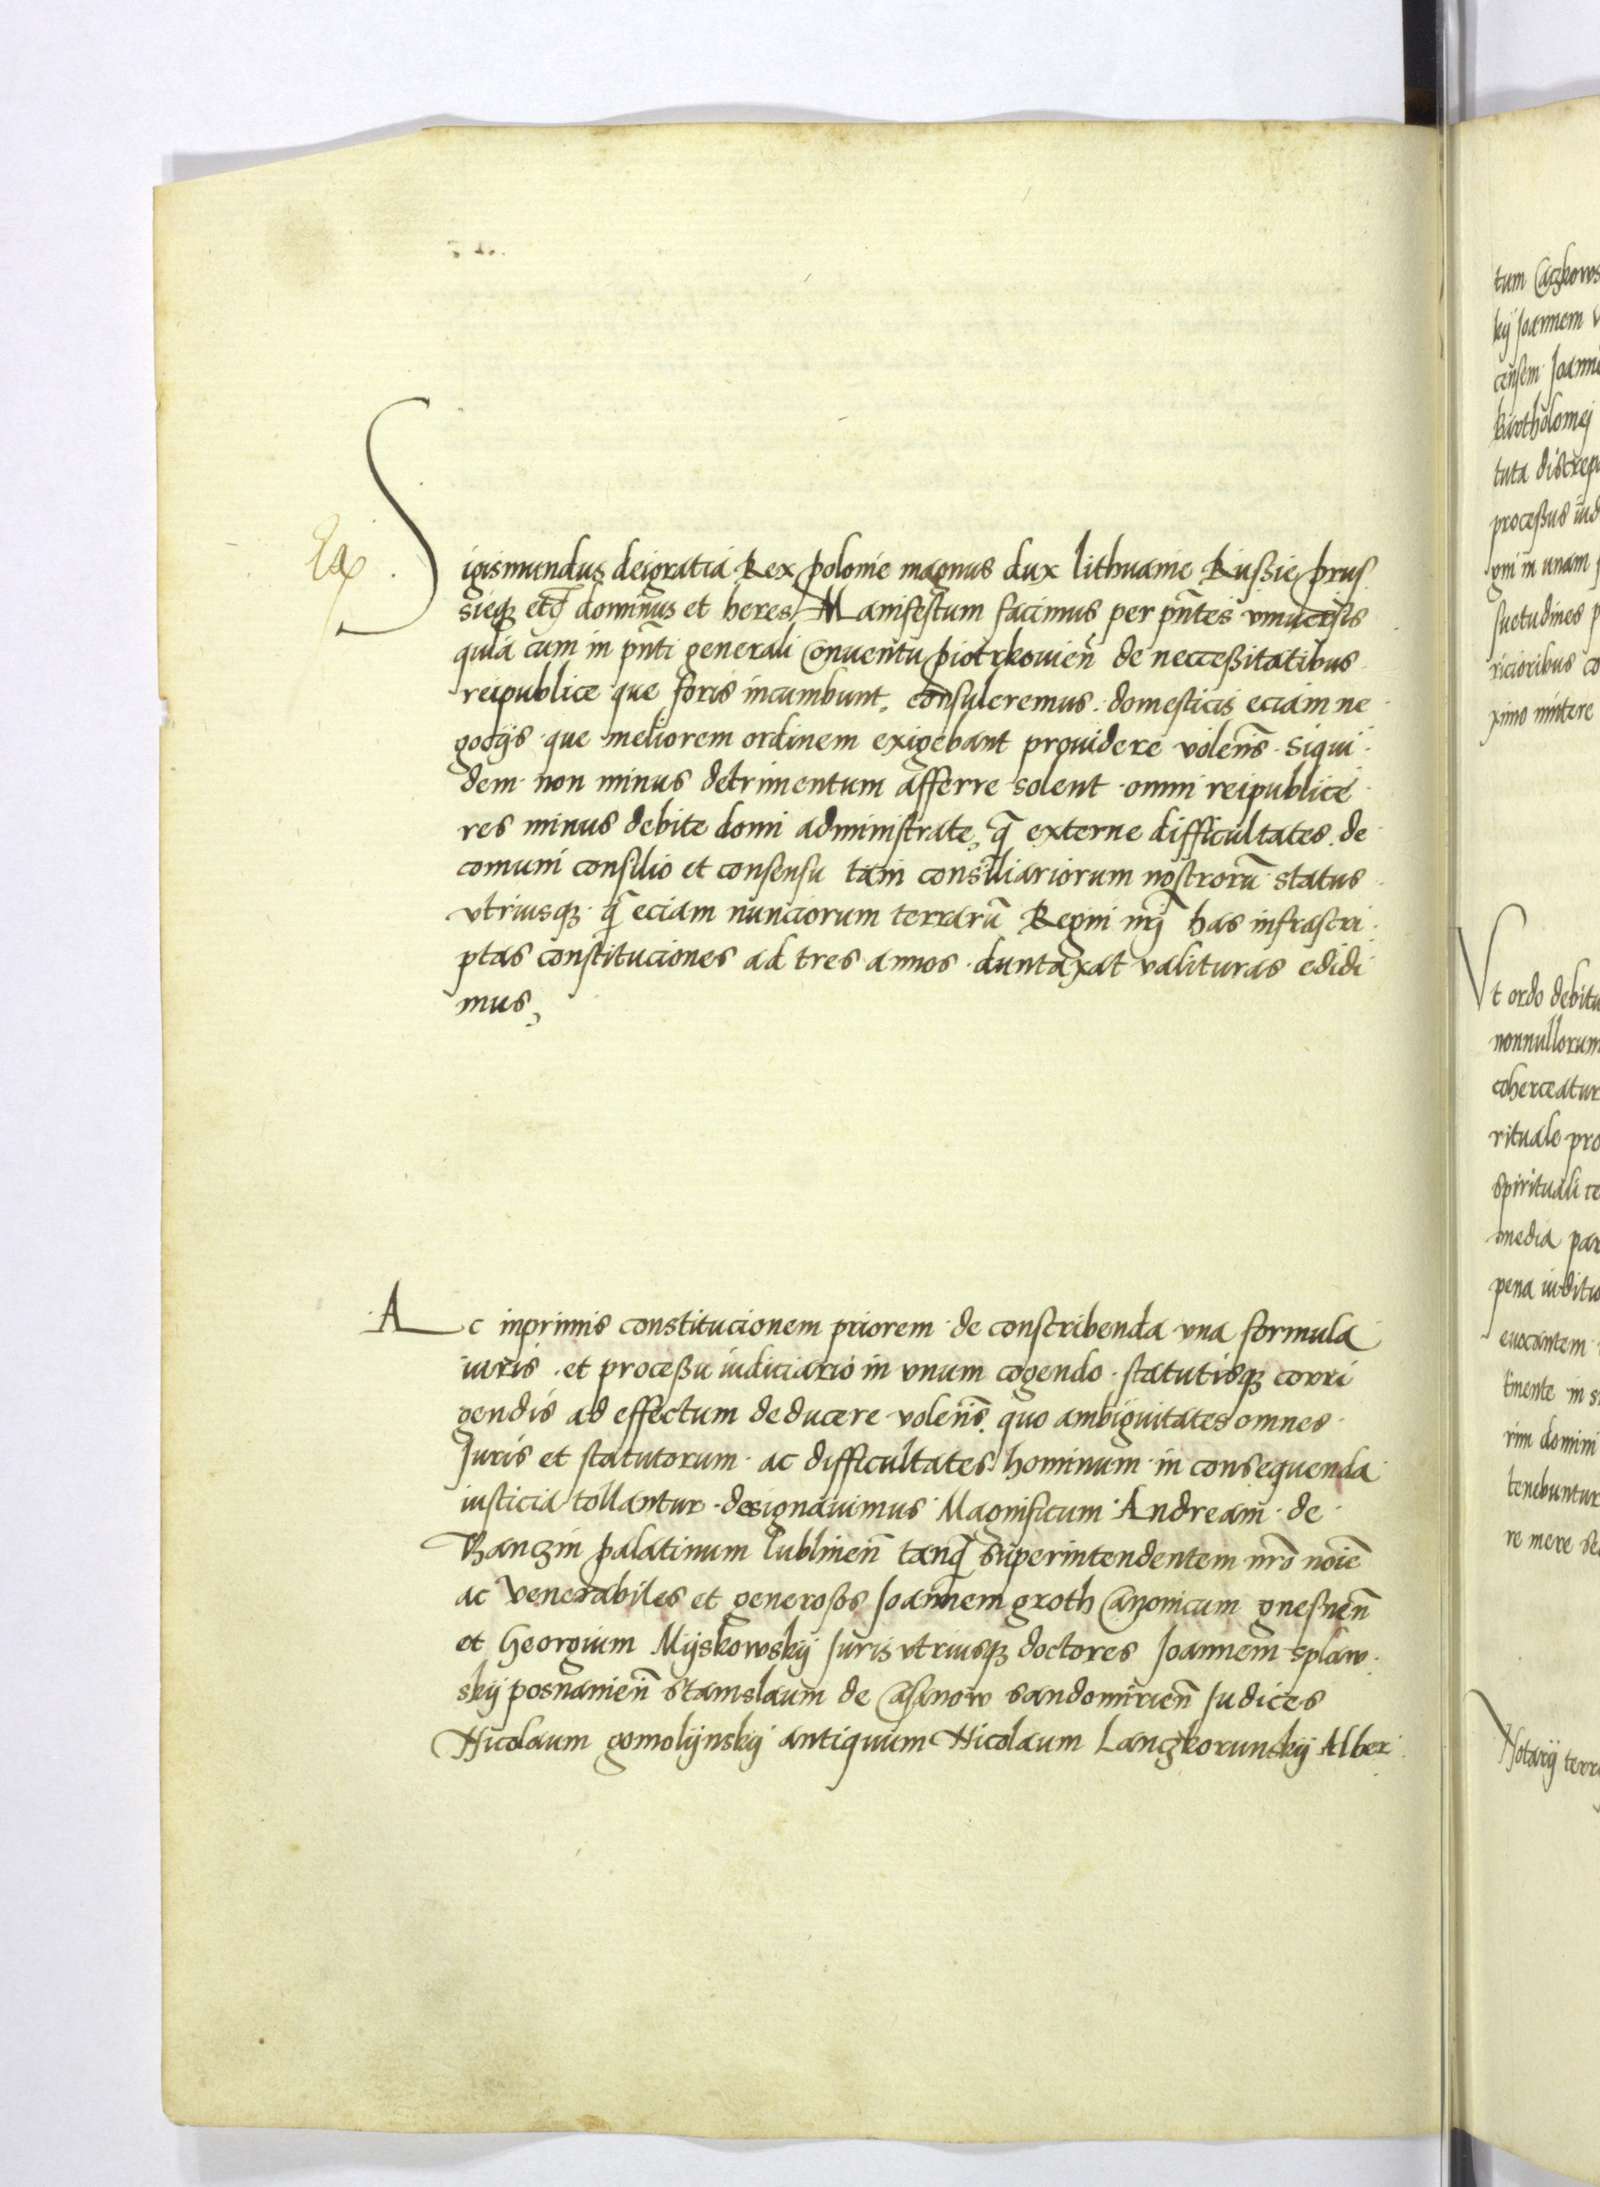 Sigismundus deigratia Rex polonie magnus dux lithuanie Russie prus
sieq; etc̄ dominus et heres / Manifestum facimus per pn̄tes vniuersis
quia cum in pn̄ti generali Conuentu piotrkouien̄ de neccessitatibus
reipublice que foris incumbunt, consuleremus. domesticis eciam ne
gocijs que meliorem ordinem exigebant prouidere volen̄s. siqui
dem non minus detrimentum afferre solent omni reipublice
res minus debite domi administrate, q̄ externe difficultates. de
comuni consilio et consensu tam consiliariorum nostrorū status
vtriusq; q̄ eciam nunciorum terrarū Regni nr̄j has infrascri
ptas constituciones ad tres annos duntaxat valituras edidi
mus,
Ac inprimis constitucionem priorem de conscribenda vna formula
iuris et processu iudiciario in vnum cogendo statutisq; corri
gendis ad effectum deducere volen̄s, quo ambiguitates omnes
Juris et statutorum ac difficultates hominum in consequenda
iusticia tollantur designauimus Magnificum Andream de
Thanczin palatinum lublinen̄ tanq̄ superintendentem nr̄o noīe
ac venerabiles et generosos Joannem groth Canonicum gnesnen̄
et Georgium Mijskowskij Juris vtriusq; doctores Joannem splaw
skij posnanien̄ stanislaum de Casinow sandomirien̄ Judices
Nicolaum gomolijnskij antiquum Nicolaum Langkorunskij Alber
tum Caczkows
kij Joannem
censem Joann
Bartholomej
tuta discrep
processus iud
gni in vnam
suetudines p
ricioribus co
ximo mittere
Vt ordo debitu
nonnullorum
coherceatur
rituale pro
spirituali te
media par
pena iuditio
euocantem
tinente in s
rim domini
tenebuntur
re mere se
Notarij terr